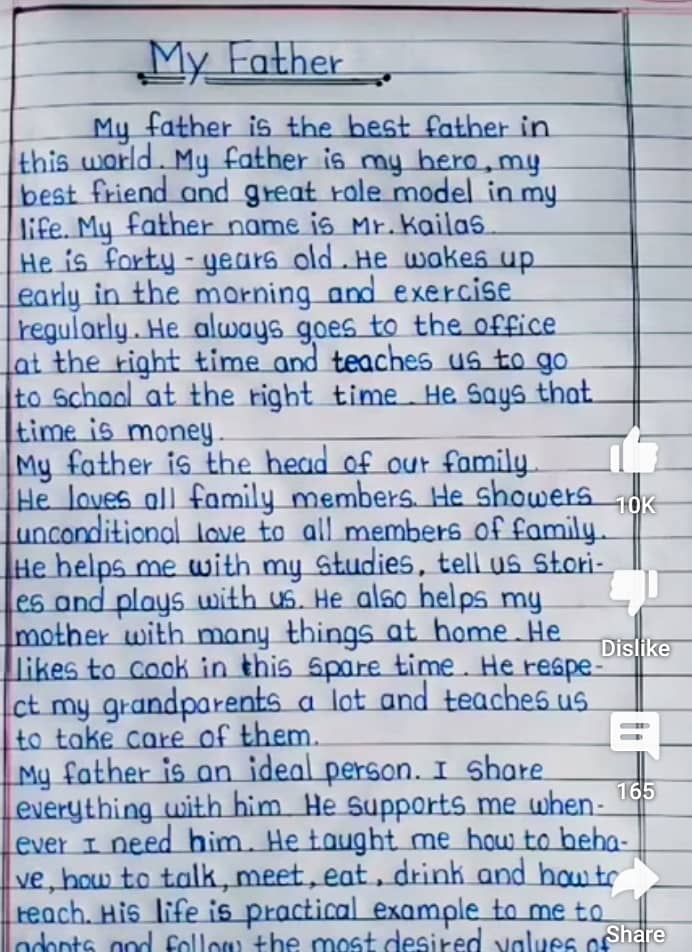 My Father
My father is the best father in
this world. My father is my hero, my
best friend and great role model in my
life. My father name is Mr. Kailas.
He is forty - years old. He wakes up
early in the morning and exercise
regularly. He always goes to the office
at the right time and teaches us to go
to school at the right time. He says that
time is money.
My father is the head of our family.
He loves all family members. He showers
unconditional love to all members of family.
He helps me with my studies, tell us stori-
es and plays with us. He also helps my
mother with many things at home. He
likes to cook in this spare time. He respe-
ct my grandparents a lot and teaches us
to take care of them.
My father is an ideal person. I share
everything with him. He supports me when-
ever I need him. He taught me how to beha-
ve, how to talk, meet, eat, drink and how to
reach. His life is practical example to me to
adopts and follow the most desired values
10K
Dislike
165
Share